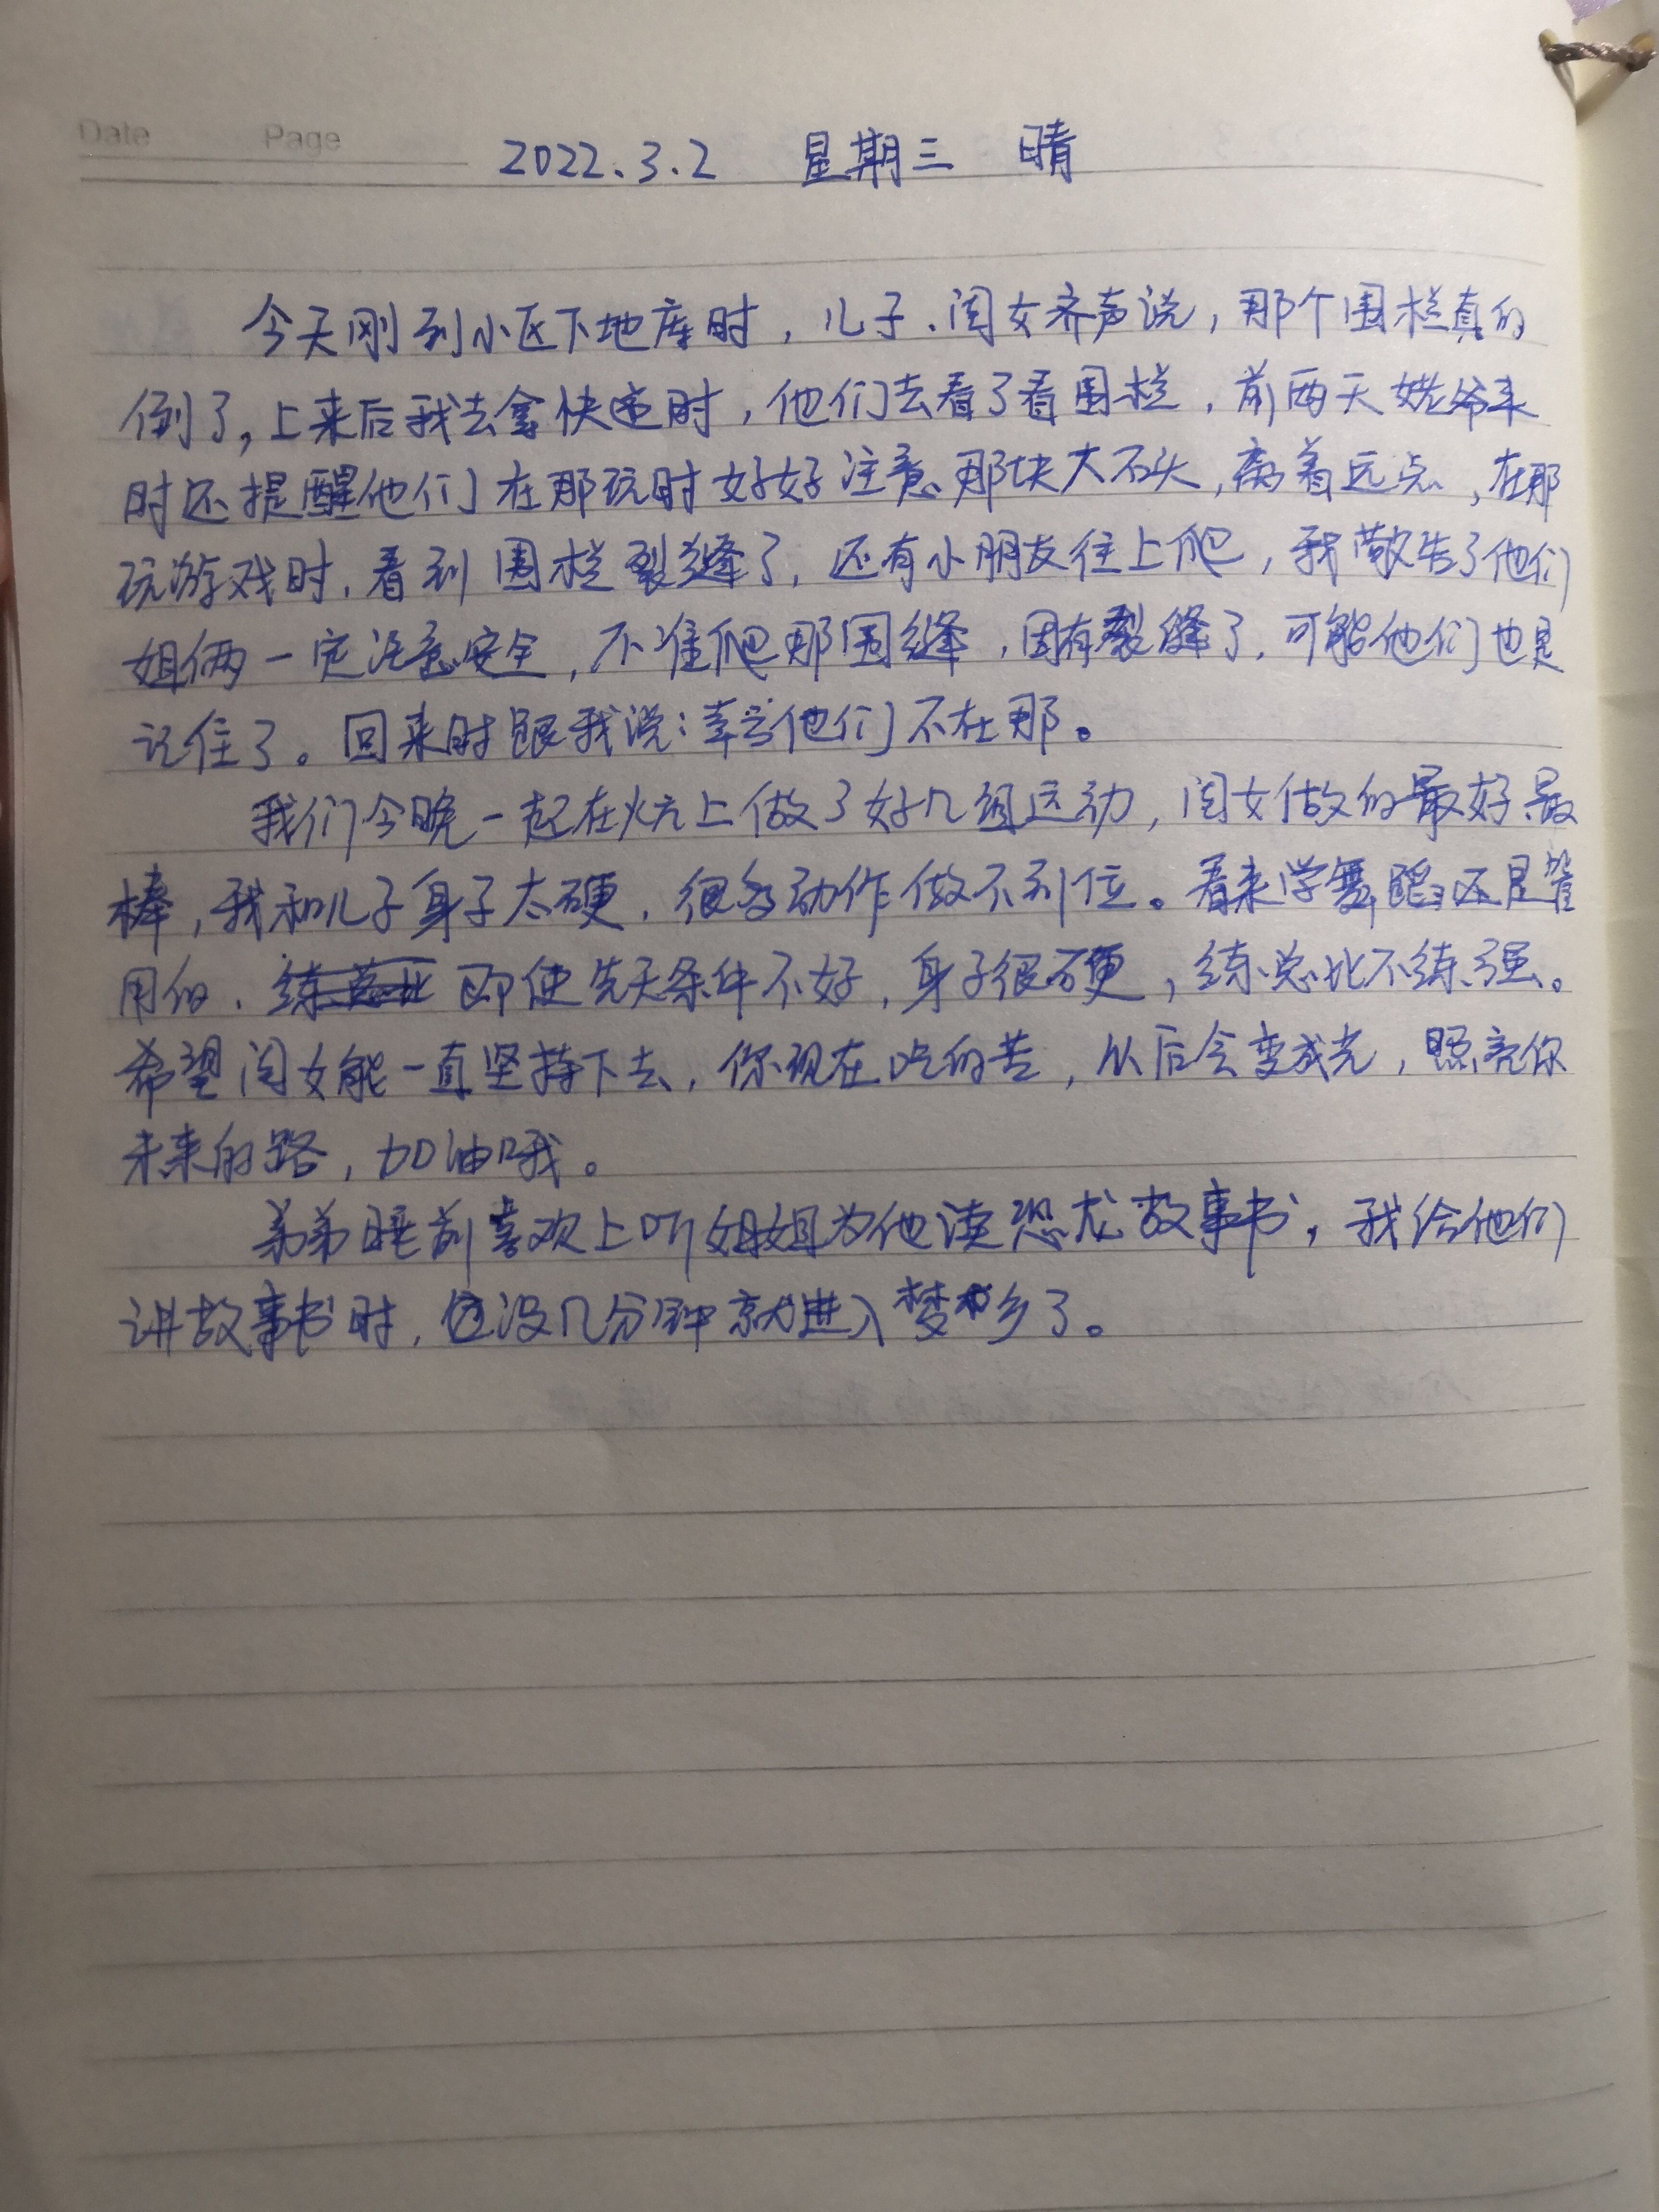 Date Page
2022.3.2 星期三 晴
今天刚到小区下地库时，儿子、闺女齐声说，那个围栏真的
倒了，上来后我去拿快递时，他们去看了看围栏，前两天姥爷来
时还提醒他们在那玩时好好注意那块大石头，离着远点，在那
玩游戏时，看到围栏裂缝了，还有小朋友往上爬，我敬告了他们
姐俩一定注意安全，不准爬那围缝，因有裂缝了，可能他们也是
记住了。回来时跟我说：幸亏他们不在那。
我们今晚一起在炕上做了好几组运动，闺女做的最好最
棒，我和儿子身子太硬，很多动作做不到位。看来学舞蹈还是管
用的，即使先天条件不好，身子很硬，练总比不练强。
希望闺女能一直坚持下去，你现在吃的苦，以后会变成光，照亮你
未来的路，加油哦。
弟弟睡前喜欢上听姐姐为他读恐龙故事书，我给他们
讲故事书时，没几分钟就进入梦乡了。